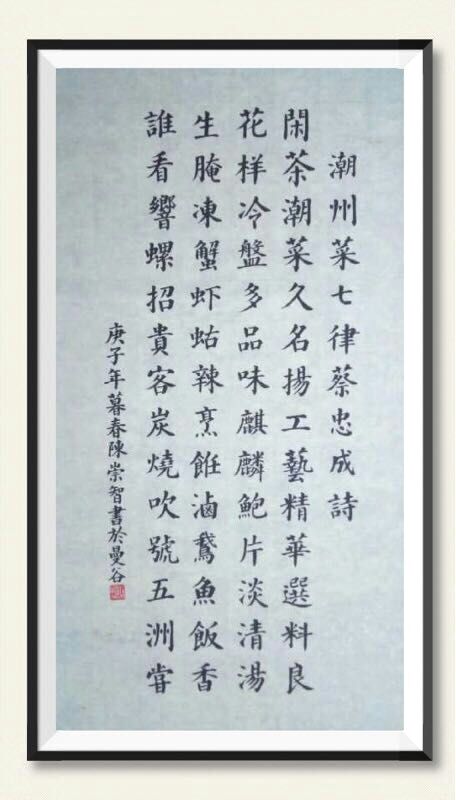 潮州菜七律蔡忠成詩
閑茶潮菜久名揚工藝精華選料良
花样冷盤多品味麒麟鮑片淡清湯
生腌凍蟹虾蛄辣烹飪滷鵞魚飯香
誰看響螺招貴客炭燒吹號五洲甞
庚子年暮春陳崇智書於曼谷